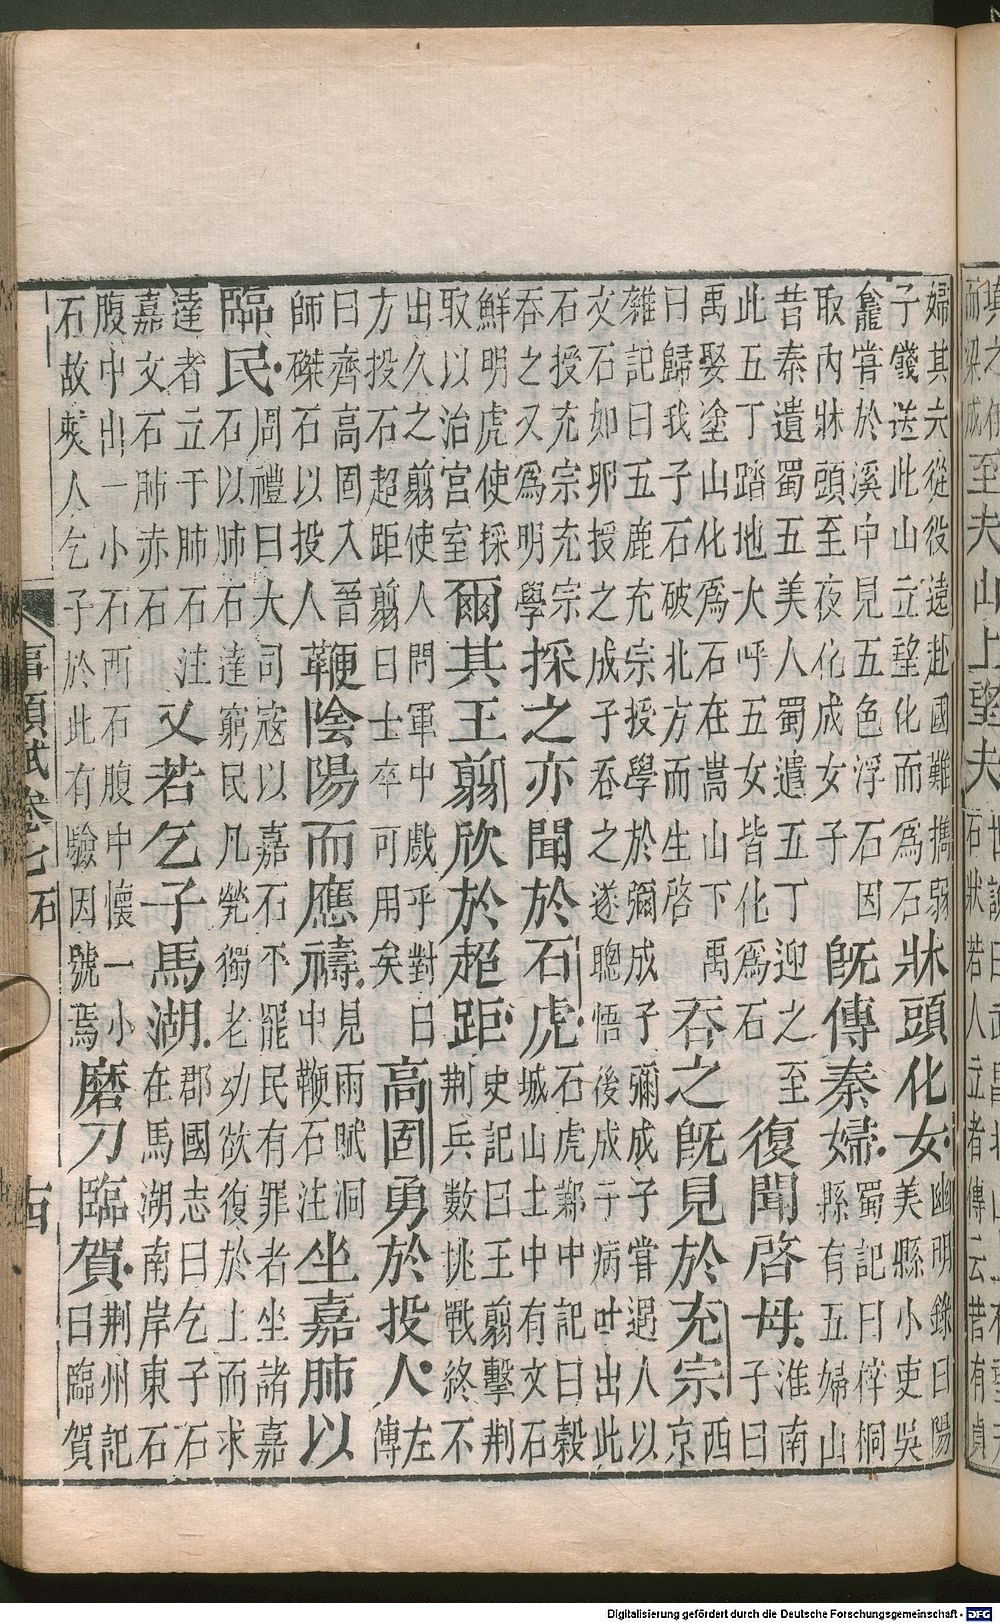 而梁成至夫山上望夫石狀若人立者傳云昔有貞
婦其夫從役遠赴國難攜弱
子餞送此山立望化而為石
牀頭化女
幽明錄曰陽
美縣小吏吳
龕嘗於溪中見五色浮石因
取內牀頭至夜化成女子
旣傳秦婦
蜀記曰梓桐
縣有五婦山
昔秦遺蜀五美人蜀遣五丁迎之至
此五丁踏地大呼五女皆化為石
復聞啓母
淮南
子曰
禹娶塗山化為石在嵩山下禹
曰歸我子石破北方而生啓
吞之旣見於充宗
西京
雜記曰五鹿充宗授學於彌成子彌成子嘗遇人以
交石如卵授之成子吞之遂聰悟後成子病吐出此
石授充宗充宗
吞之又為明學
採之亦聞於石虎
石虎鄴中記曰穀
城山土中有文石
鮮明虎使採
取以治宮室
爾其王翦欣於超距
史記曰王翦擊荆
荆兵數挑戰終不
出久之翦使人問軍中戲乎對曰
方投石超距翦曰士卒可用矣
高固勇於投人
左
傳
曰齊高固入晉
師磔石以投人
鞭陰陽而應禱
見雨賦洞
中鞭石注
坐嘉肺以
臨民
周禮曰大司寇以嘉石不罷民有罪者坐諸嘉
石以肺石達窮民凡煢獨老幼欲復於上而求
達者立于肺石注
嘉文石肺赤石
又若乞子馬湖
郡國志曰乞子石
在馬湖南岸東石
腹中出一小石西石腹中懷一小
石故僰人乞子於此有驗因號焉
磨刀臨賀
荆州記
曰臨賀
事類賦卷七 石
Digitalisierung gefördert durch die Deutsche Forschungsgemeinschaft - DFG